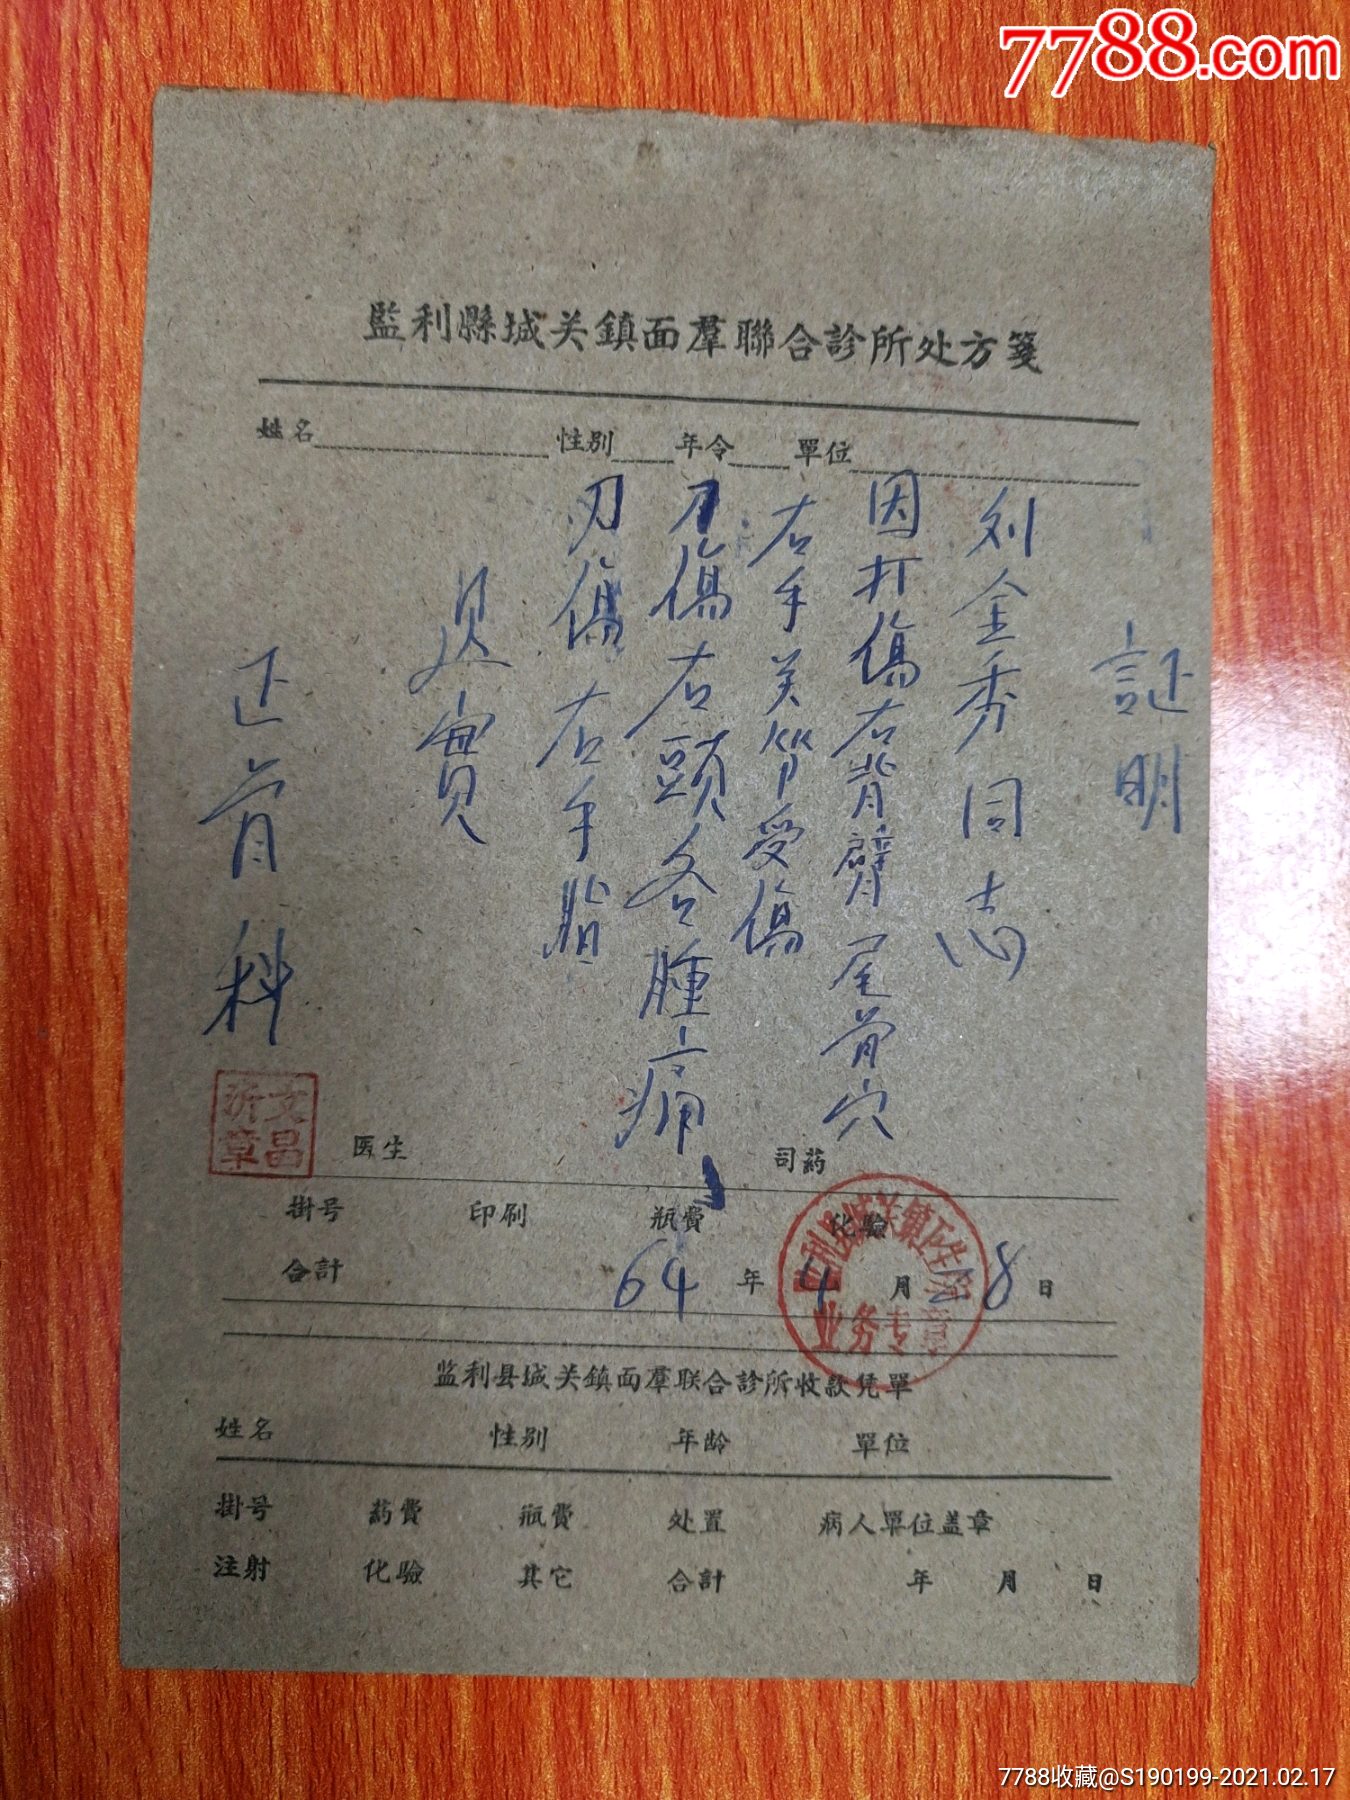 7788.com
監利縣城关鎮面羣聯合診所处方箋
姓名 性别 年令 單位
証明
刘金秀同志
因打傷右背臂尾骨穴
右手关節受傷
刀傷右頭各腫痛
刃傷右手
此實
正骨科
文昌
章
医生 司药
掛号 印刷 瓶費 化驗
合計 64年4月28日
业务专章
监利县城关鎮面羣联合診所收款凭單
姓名 性别 年龄 單位
掛号 药費 瓶費 处置 病人單位盖章
注射 化驗 其它 合計 年 月 日
7788收藏@S190199-2021.02.17